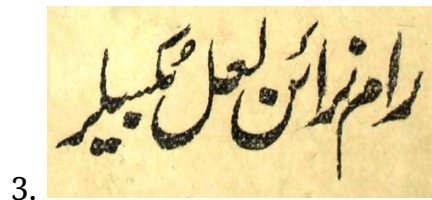 رام نرائن لعل بکسیلر
3.